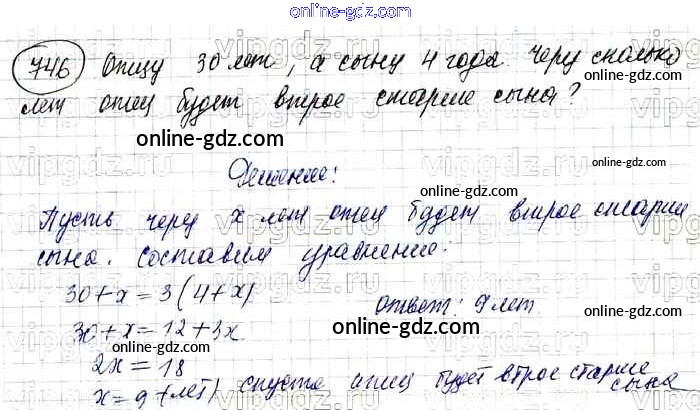 online-gdz.com
746 Отцу 30 лет, а сыну 4 года. Через сколько
лет отец будет втрое старше сына?
online-gdz.com
Решение:
online-gdz.com
Пусть через x лет отец будет втрое старше
сына. Составим уравнение:
30+x=3(4+x)
Ответ: 9 лет
30+x=12+3x
online-gdz.com
2x=18
x=9 (лет) спустя отец будет втрое старше
сына
online-gdz.com